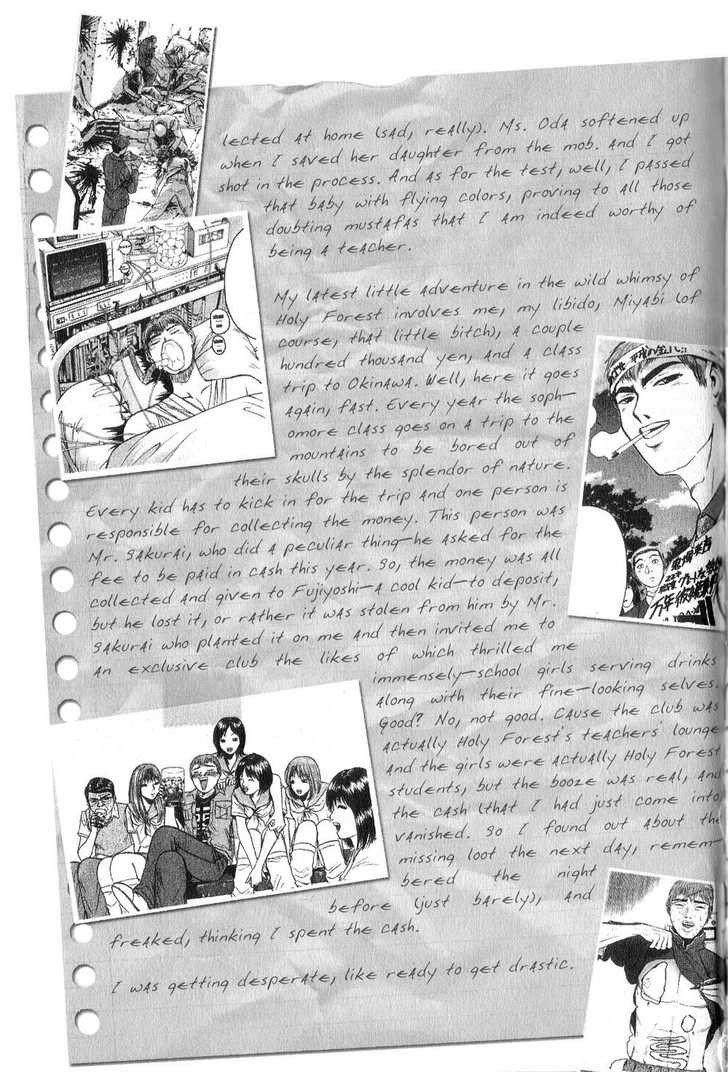 lected at home (sad, really). Ms. Oda softened up
when I saved her daughter from the mob. And I got
shot in the process. And as for the test, well, I passed
that baby with flying colors, proving to all those
doubting mustafas that I am indeed worthy of
being a teacher.
My latest little adventure in the wild whimsy of
Holy Forest involves me, my libido, Miyabi (of
course, that little bitch), a couple
hundred thousand yen, and a class
trip to Okinawa. Well, here it goes
again, fast. Every year the soph-
omore class goes on a trip to the
mountains to be bored out of
their skulls by the splendor of nature.
Every kid has to kick in for the trip and one person is
responsible for collecting the money. This person was
Mr. Sakurai, who did a peculiar thing—he asked for the
fee to be paid in cash this year. So, the money was all
collected and given to Fujiyoshi—a cool kid—to deposit,
but he lost it, or rather it was stolen from him by Mr.
Sakurai who planted it on me and then invited me to
an exclusive club the likes of which thrilled me
immensely—school girls serving drinks
along with their fine-looking selves.
Good? No, not good. Cause the club was
actually Holy Forest's teachers' lounge
and the girls were actually Holy Forest
students, but the booze was real, and
the cash (that I had just come into
vanished. So I found out about the
missing loot the next day, remem-
bered the night
before (just barely), and
freaked, thinking I spent the cash.
I was getting desperate, like ready to get drastic.